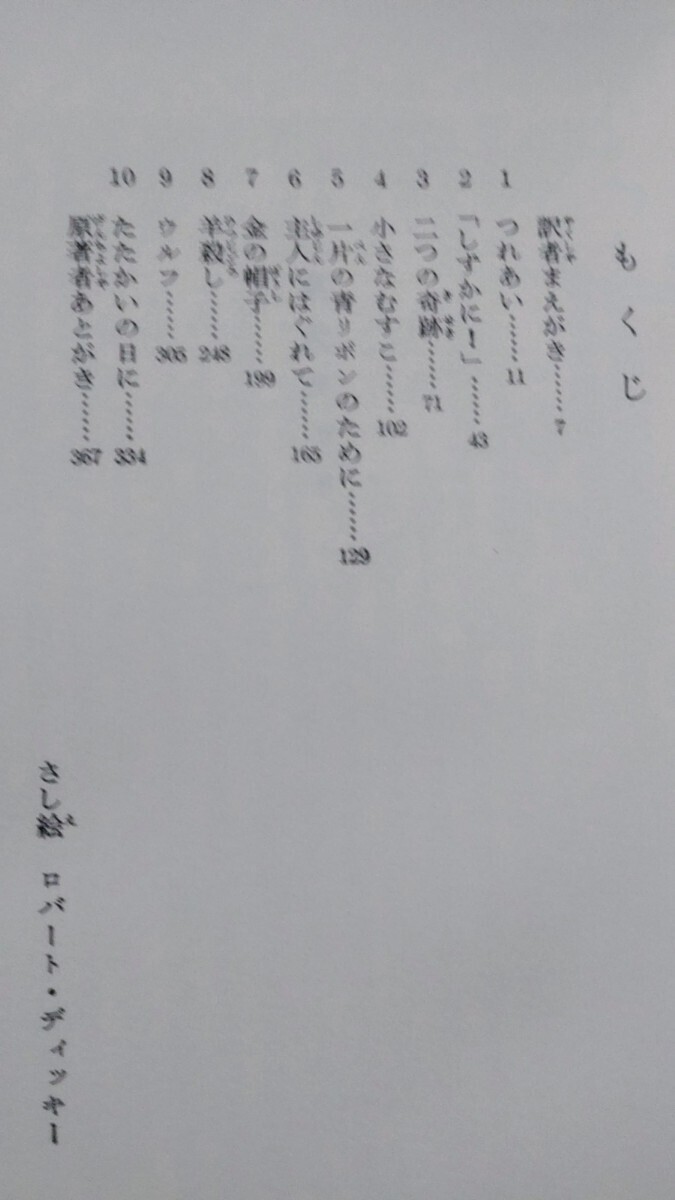 もくじ
訳者まえがき……7
1 つれあい……11
2 「しずかに！」……43
3 二つの奇跡……71
4 小さなむすこ……102
5 一片の青リボンのために……129
6 主人にはぐれて……165
7 金の帽子……199
8 羊殺し……248
9 ウルフ……305
10 たたかいの日に……334
原著者あとがき……367
さし絵 ロバート・ディッキー